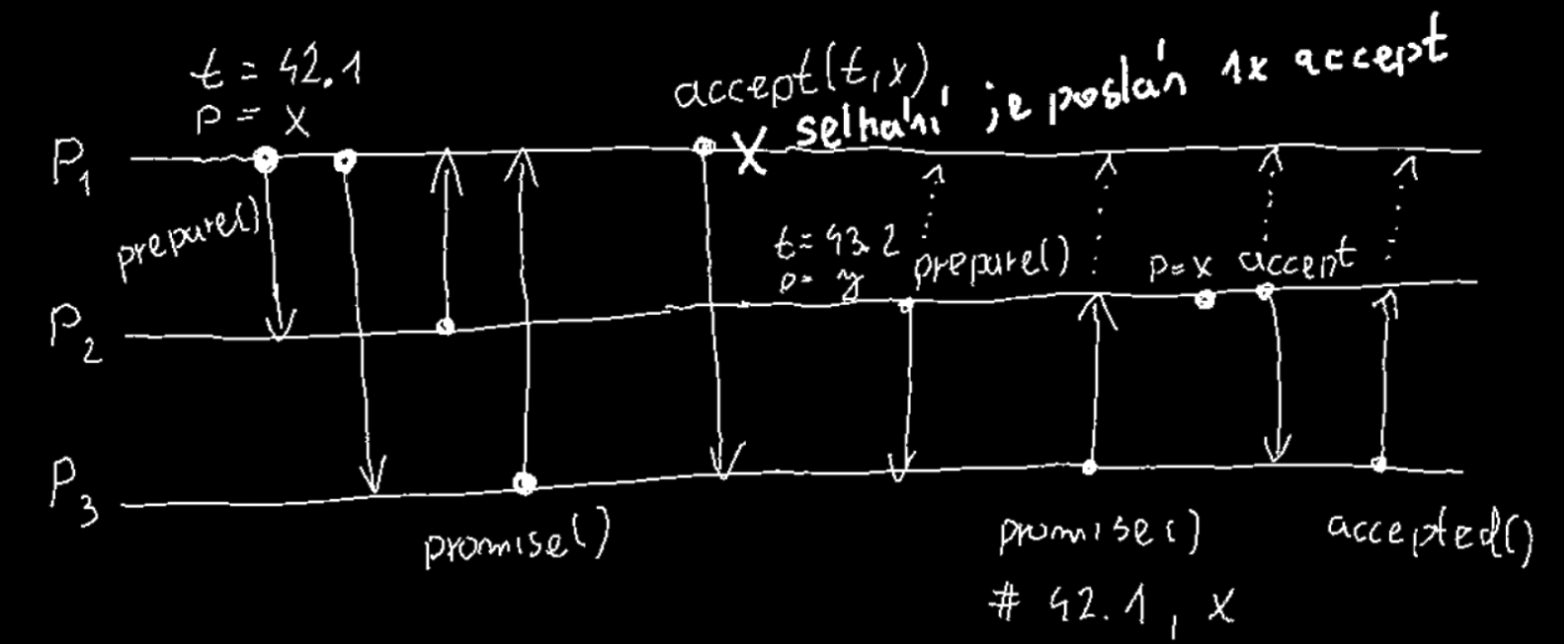 t = 42.1
p = x
accept(t,x)
selhání je poslán 1x accept
P1
prepare()
t = 43.2
p = y
prepare()
p=x accept
P2
P3
promise()
promise()
# 42.1, x
accepted()